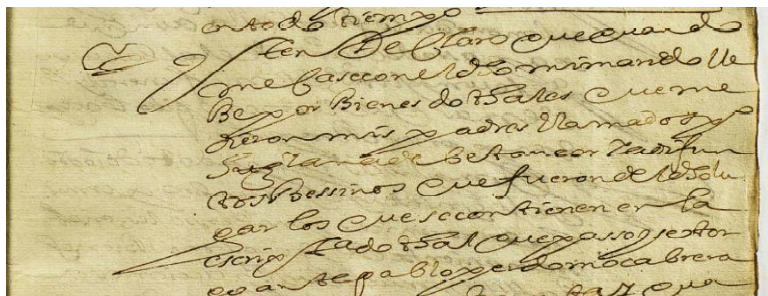 en todo tiempo
Yten Declaro que quando
me case con el dho mi marido lle
be por bienes dotales que me
dieron mis padres llamados
difun
tos bessinos que fueron del dho lu
gar los que se contienen en la
escriptura dotal que passo y se otor
go ante pablo perdomo cabrera